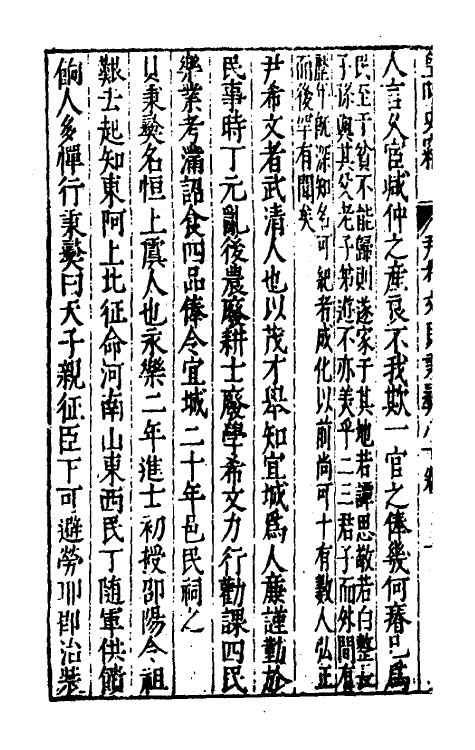 尹希文貝秉彝
人言久宦減仲之產良不我欺一官之俸幾何已為
民至于貧不能歸則遂家于其地若譚思敬若白整長
子孫與其父老子弟遊不亦美乎二三君子而外間有
歷年既深知名可紀者成化以前尚可十有數人弘正
而後罕有聞矣
尹希文者武清人也以茂才舉知宜城爲人廉謹勤於
民事時丁元亂後農廢耕士廢學希文力行勸課四民
樂業考滿詔食四品俸令宜城二十年邑民祠之
貝秉彝名恒上虞人也永樂二年進士初授邵陽令祖
艱去起知東阿上北征命河南山東西民丁隨軍供餽
餉人多憚行秉彝曰天子親征臣下可避勞耶即治裝